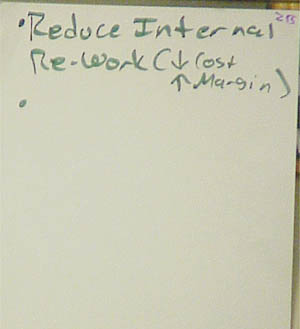 •Reduce Internal
Re-Work (↓Cost
↑Margin)
•